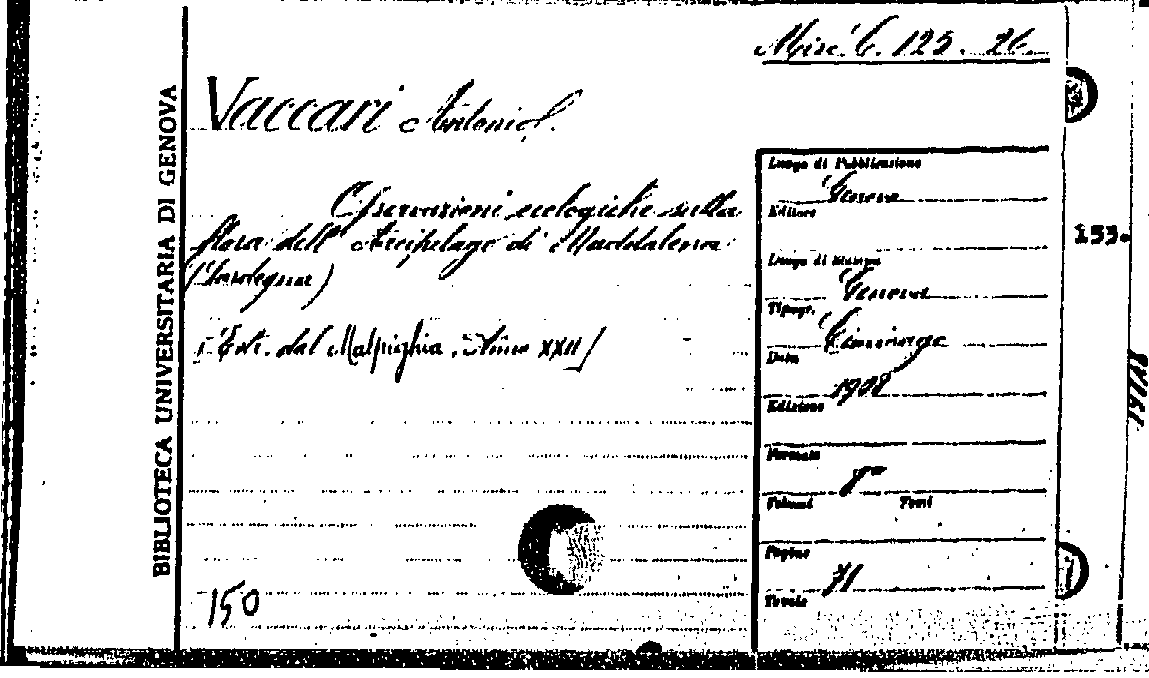 Misc. C. 125. 26.
BIBLIOTECA UNIVERSITARIA DI GENOVA
Vaccari Antonio.
Osservazioni ecologiche sulla
flora dell' Arcipelago di Maddalena
(Sardegna)
(Estr. dal Malpighia. Anno XXII)
150
Luogo di Pubblicazione
Genova
Editore
Luogo di Stampa
Genova
Tipogr.
Ciminago
Data
1908
Edizione
Formato
8°
Volumi Tomi
Pagine
71
Tavole
153.